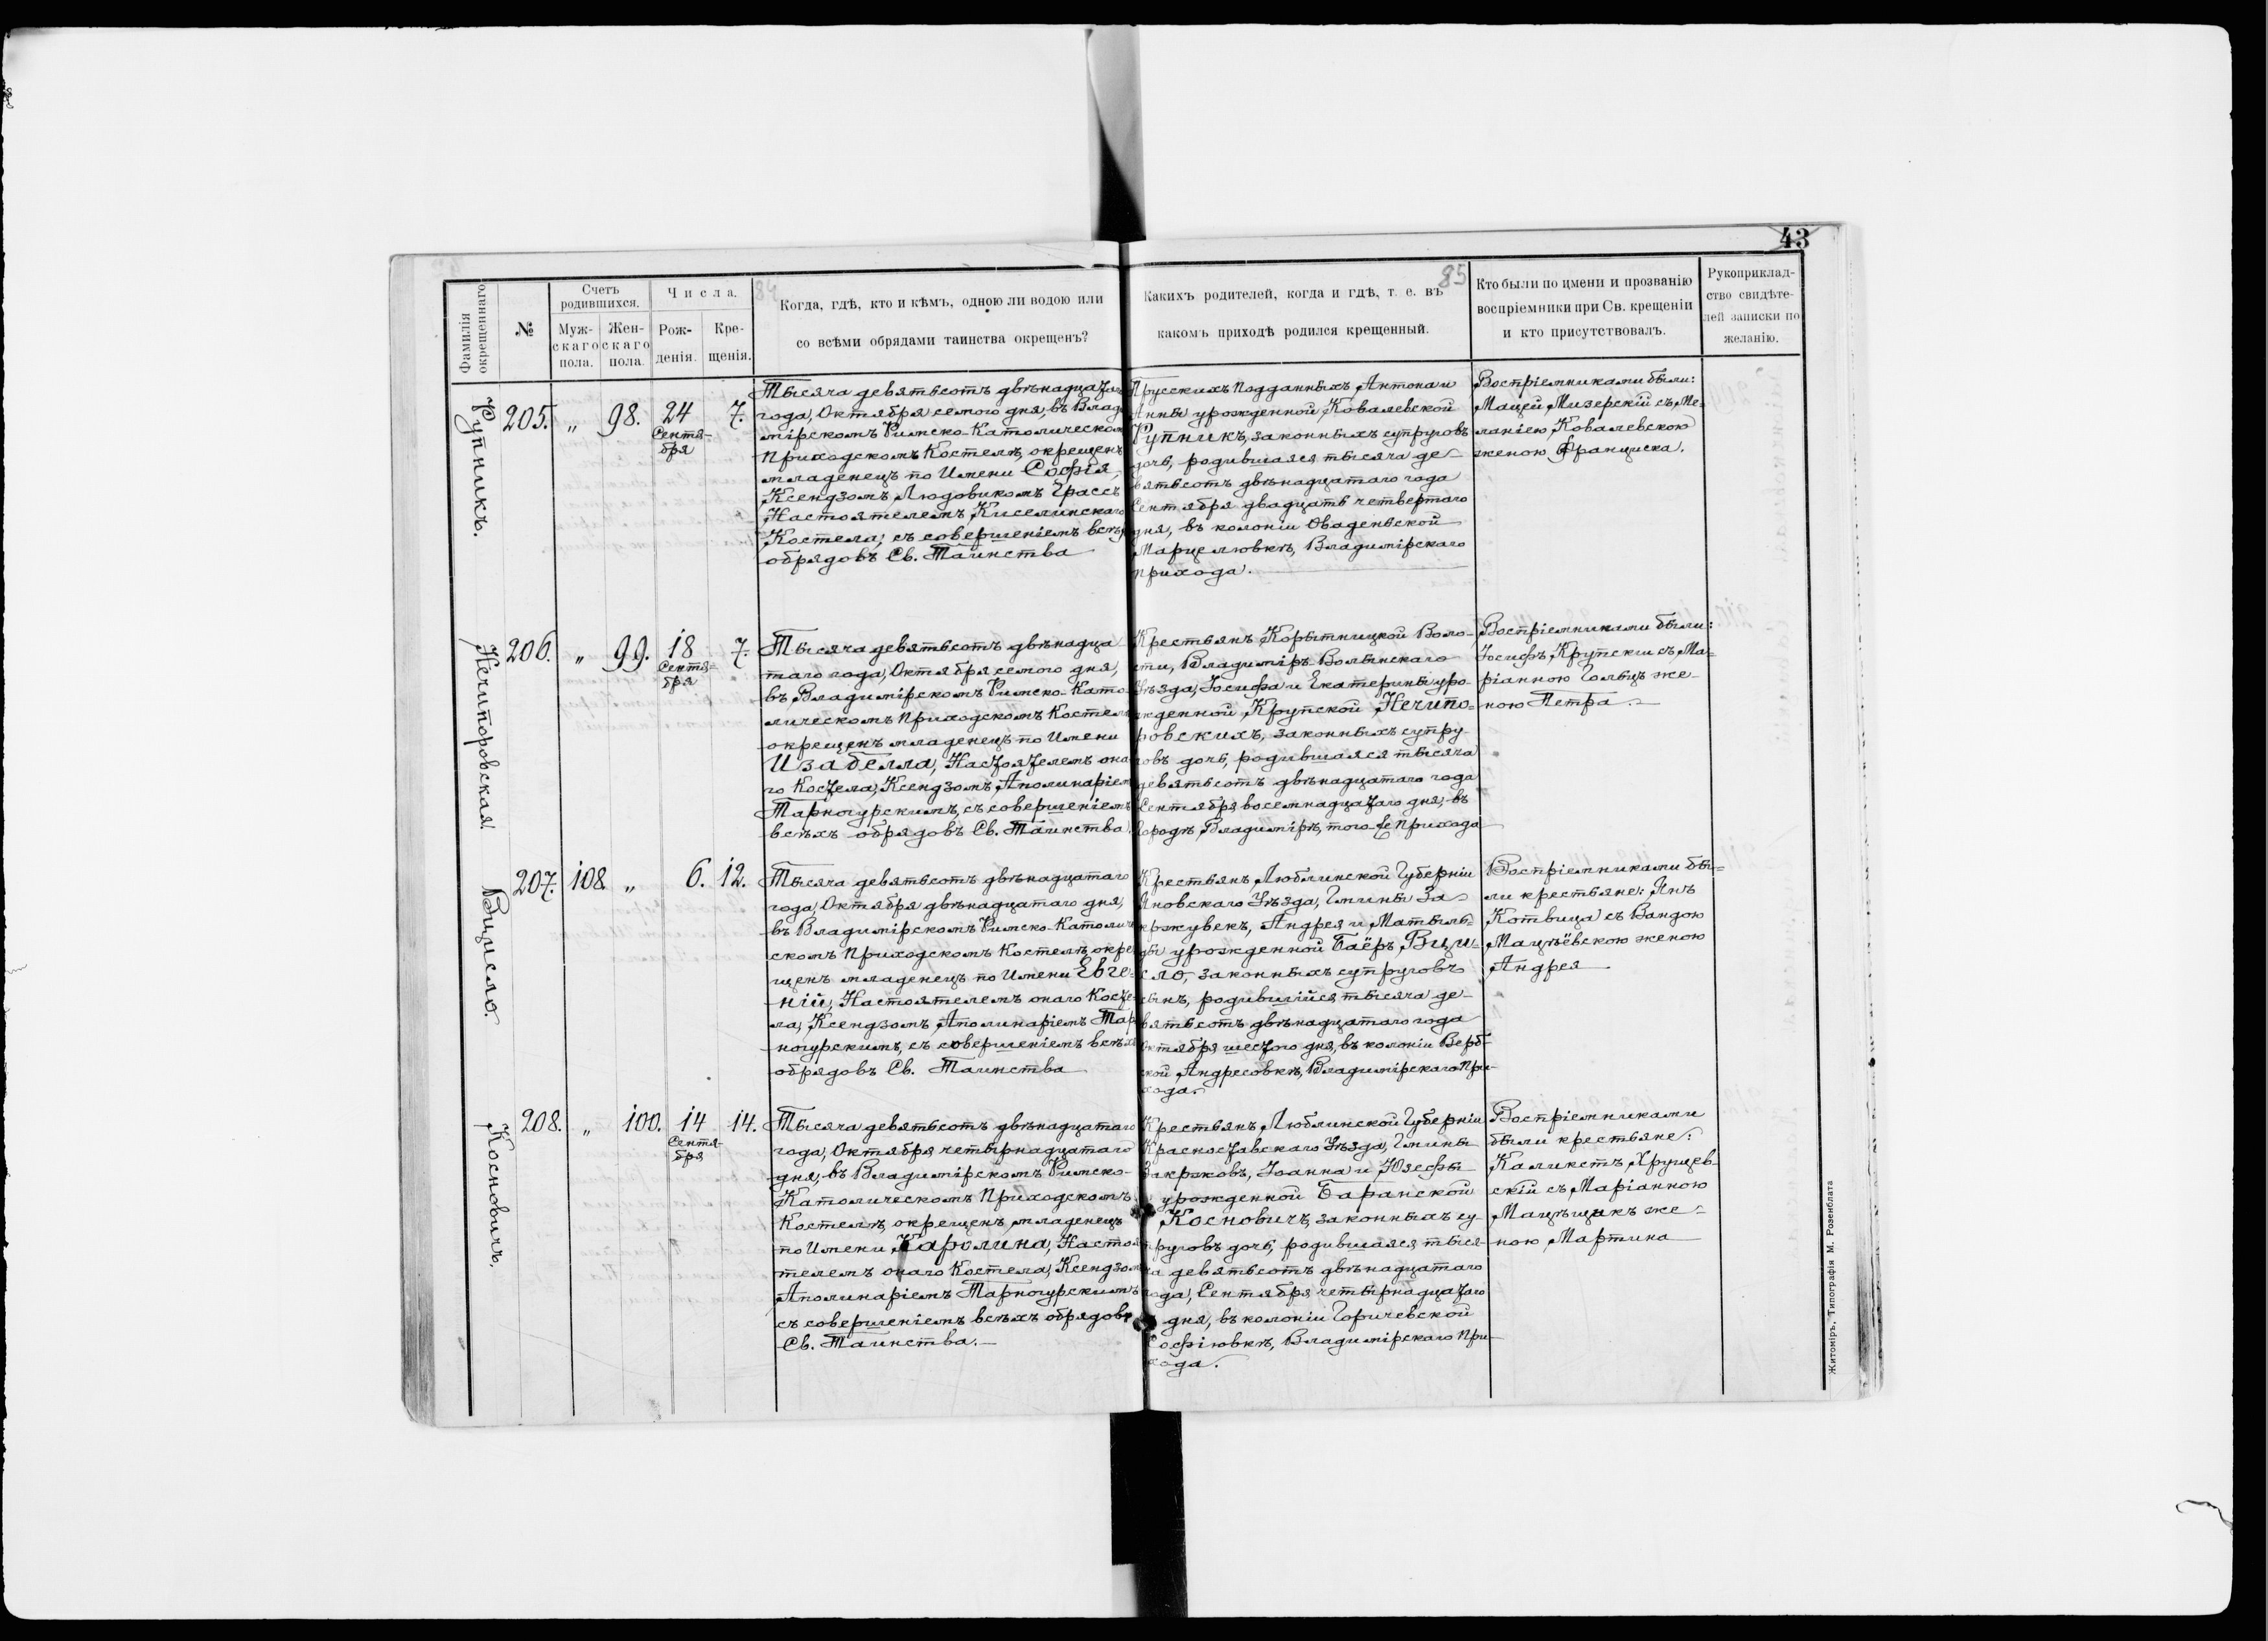 43
84
85
Фамилія окрещеннаго.
№
Счетъ родившихся.
Муж-скаго пола.
Жен-скаго пола.
Числа.
Рож-денія.
Кре-щенія.
Когда, гдѣ, кто и кѣмъ, одною ли водою или
со всѣми обрядами таинства окрещенъ?
Какихъ родителей, когда и гдѣ, т. е. въ
какомъ приходѣ родился крещенный.
Кто были по имени и прозванію
воспріемники при Св. крещеніи
и кто присутствовалъ.
Рукоприклад-
ство свидѣте-
лей записки по
желанію.
Рупникъ.
205. „ 98. 24 Сентя-бря 7.
Тысяча девятьсотъ двѣнадцатаго
года, Октября семого дня, въ Влади
мірскомъ Римско-Католическом
Приходскомъ Костелѣ, окрещенъ
младенецъ по Имени Софія,
Ксендзомъ Людовикомъ Грассъ
Настоятелемъ Киселинскаго
Костела, съ совершеніемъ всѣх
обрядовъ Св. Таинства
Прусскихъ подданныхъ Антона и
Анны урожденной Ковалевской
Рупникъ, законныхъ супруговъ
дочь, родившаяся тысяча де-
вятьсотъ двѣнадцатаго года
Сентября двадцать четвертаго
дня, въ колоніи Оваденьской
Марцелювкѣ, Владимірскаго
прихода.
Воспріемниками были:
Мацей Мизерскій съ Ме-
ланіею Ковалевскою
женою Франциска.
Нечипоровская.
206. „ 99. 18 Сентя-бря 7.
Тысяча девятьсотъ двѣнадца
таго года, Октября семого дня,
въ Владимірскомъ Римско-Като-
лическомъ Приходскомъ Костелѣ
окрещенъ младенецъ по Имени
Изабелла, Настоятелемъ она
го Костела, Ксендзомъ Аполинаріем
Тарногурскимъ, съ совершеніемъ
всѣхъ обрядовъ Св. Таинства.
Крестьянъ Корытницкой Воло-
сти, Владиміръ-Волынскаго
Уѣзда, Іосифа и Екатерины уро-
жденной Крупской Нечипо-
ровскихъ, законныхъ супру
говъ дочь, родившаяся тысяча
девятьсотъ двѣнадцатаго года
Сентября восемнадцатаго дня, въ
городѣ Владимірѣ, того-же прихода
Воспріемниками были:
Іосифъ Крупски съ Ма-
ріанною Гольцъ же-
ною Петра.
Вицисло.
207. 108 „ 6. 12.
Тысяча девятьсотъ двѣнадцатаго
года, Октября двѣнадцатаго дня,
въ Владимірскомъ Римско-Католиче
скомъ Приходскомъ Костелѣ, окре
щенъ младенецъ по Имени Евге-
ній, Настоятелемъ онаго Косте
ла, Ксендзомъ Аполинаріемъ Тар
ногурскимъ, съ совершеніемъ всѣхъ
обрядовъ Св. Таинства
Крестьянъ, Люблинской Губерніи
Яновскаго Уѣзда, Гмины За-
кржувекъ, Андрея и Матиль-
ды урожденной Баёръ, Вици-
сло, законныхъ супруговъ
сынъ, родившійся тысяча де-
вятьсотъ двѣнадцатаго года
Октября шестого дня, въ колоніи Верб-
ской Андресовкѣ, Владимірскаго При-
хода.
Воспріемниками бы-
ли крестьяне: Янъ
Котвица съ Вандою
Мацѣёвскою женою
Андрея
Косновичъ.
208. „ 100. 14 Сентя-бря 14.
Тысяча девятьсотъ двѣнадцатаго
года, Октября четырнадцатаго
дня, въ Владимірскомъ Римско-
Католическомъ Приходскомъ
Костелѣ, окрещенъ младенецъ
по Имени Каролина, Настоя
телемъ онаго Костела, Ксендзом
Аполинаріемъ Тарногурскимъ
съ совершеніемъ всѣхъ обрядовъ
Св. Таинства.
Крестьянъ Люблинской Губерніи
Красноставскаго Уѣзда, Гмины
Закржовъ, Іоанна и Юзефы
урожденной Баранской
Косновичъ, законныхъ су-
пруговъ дочь, родившаяся тыся-
ча девятьсотъ двѣнадцатаго
года, Сентября четырнадцатаго
дня, въ колоніи Горичевской
Софіювкѣ, Владимірскаго При-
хода.
Воспріемниками
были крестьяне:
Каликстъ Хрущев-
скій съ Маріанною
Мацѣщакъ же-
ною Мартина
Житоміръ, Типографія М. Розенблата